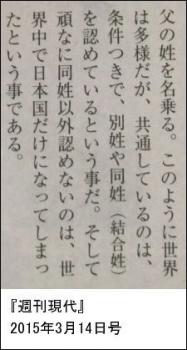 父の姓を名乗る。このように世界
は多様だが、共通しているのは、
条件つきで、別姓や同姓（結合姓）
を認めているという事だ。そして
頑なに同姓以外認めないのは、世
界中で日本国だけになってしまっ
たという事である。
『週刊現代』
2015年3月14日号